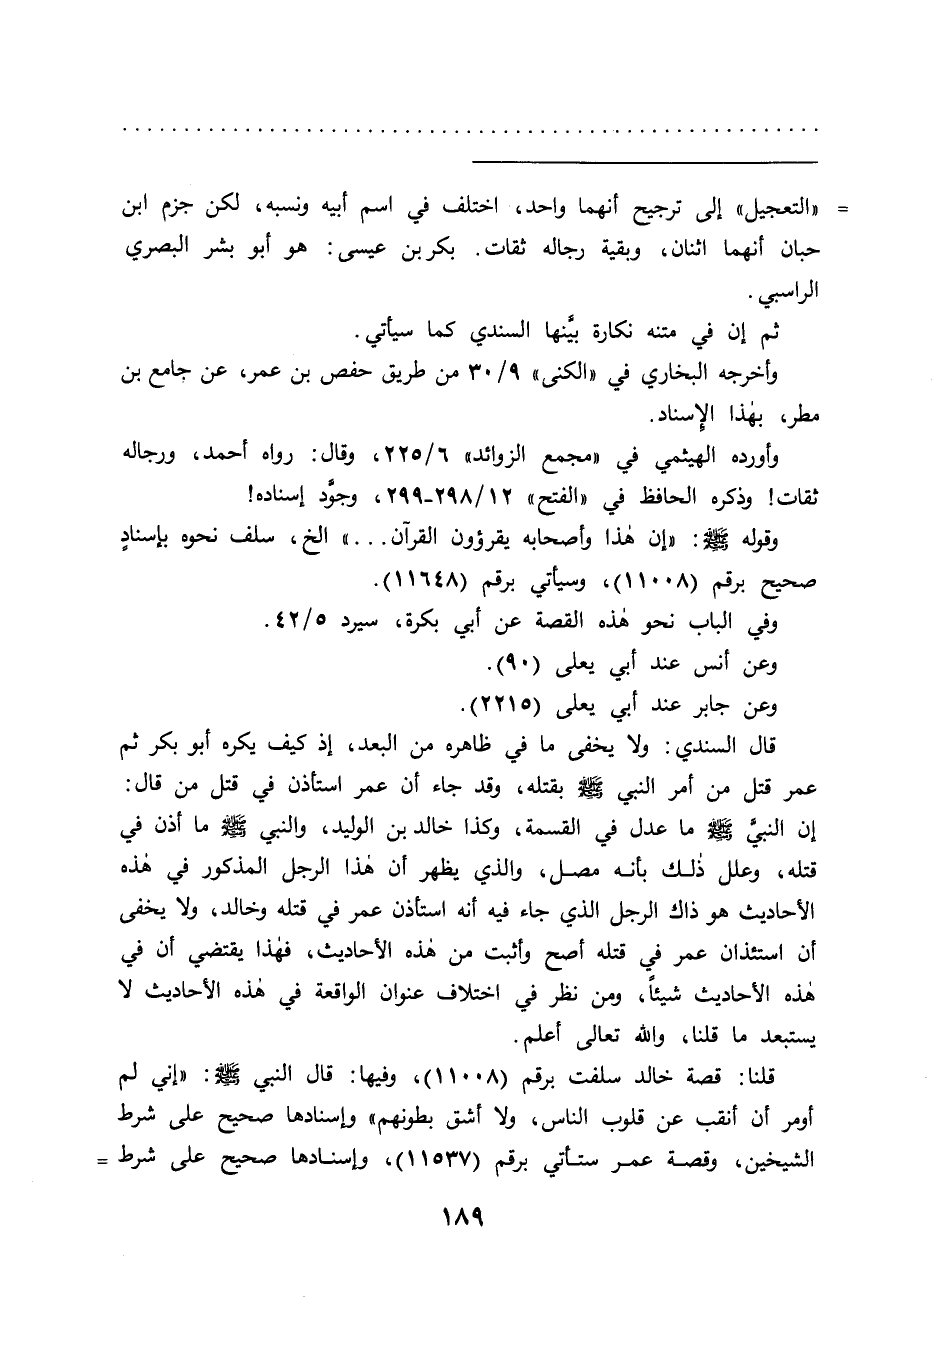 . . . . . . . . . . . . . . . . . . . . . . . . . . . . . . . . . . . . . . . . . . . . . . . . . . . . . . . . .
= «التعجيل» إلى ترجيح أنهما واحد، اختلف في اسم أبيه ونسبه، لكن جزم ابن
حبان أنهما اثنان، وبقية رجاله ثقات. بكر بن عيسى: هو أبو بشر البصري
الراسبي.
ثم إن في متنه نكارة بيَّنها السندي كما سيأتي.
وأخرجه البخاري في «الكنى» ٣٠/٩ من طريق حفص بن عمر، عن جامع بن
مطر، بهٰذا الإِسناد.
وأورده الهيثمي في «مجمع الزوائد» ٢٢٥/٦، وقال: رواه أحمد، ورجاله
ثقات! وذكره الحافظ في «الفتح» ٢٩٨/١٢-٢٩٩، وجوَّد إسناده!
وقوله ﷺ: «إن هٰذا وأصحابه يقرؤون القرآن...» الخ، سلف نحوه بإسنادٍ
صحيح برقم (١١٠٠٨)، وسيأتي برقم (١١٦٤٨).
وفي الباب نحو هٰذه القصة عن أبي بكرة، سيرد ٤٢/٥.
وعن أنس عند أبي يعلى (٩٠).
وعن جابر عند أبي يعلى (٢٢١٥).
قال السندي: ولا يخفى ما في ظاهره من البعد، إذ كيف يكره أبو بكر ثم
عمر قتل من أمر النبي ﷺ بقتله، وقد جاء أن عمر استأذن في قتل من قال:
إن النبيَّ ﷺ ما عدل في القسمة، وكذا خالد بن الوليد، والنبي ﷺ ما أذن في
قتله، وعلل ذٰلك بأنه مصل، والذي يظهر أن هٰذا الرجل المذكور في هٰذه
الأحاديث هو ذاك الرجل الذي جاء فيه أنه استأذن عمر في قتله وخالد، ولا يخفى
أن استئذان عمر في قتله أصح وأثبت من هٰذه الأحاديث، فهٰذا يقتضي أن في
هٰذه الأحاديث شيئاً، ومن نظر في اختلاف عنوان الواقعة في هٰذه الأحاديث لا
يستبعد ما قلنا، والله تعالى أعلم.
قلنا: قصة خالد سلفت برقم (١١٠٠٨)، وفيها: قال النبي ﷺ: «إني لم
أومر أن أنقب عن قلوب الناس، ولا أشق بطونهم» وإسنادها صحيح على شرط
الشيخين، وقصة عمر ستأتي برقم (١١٥٣٧)، وإسنادها صحيح على شرط =
١٨٩